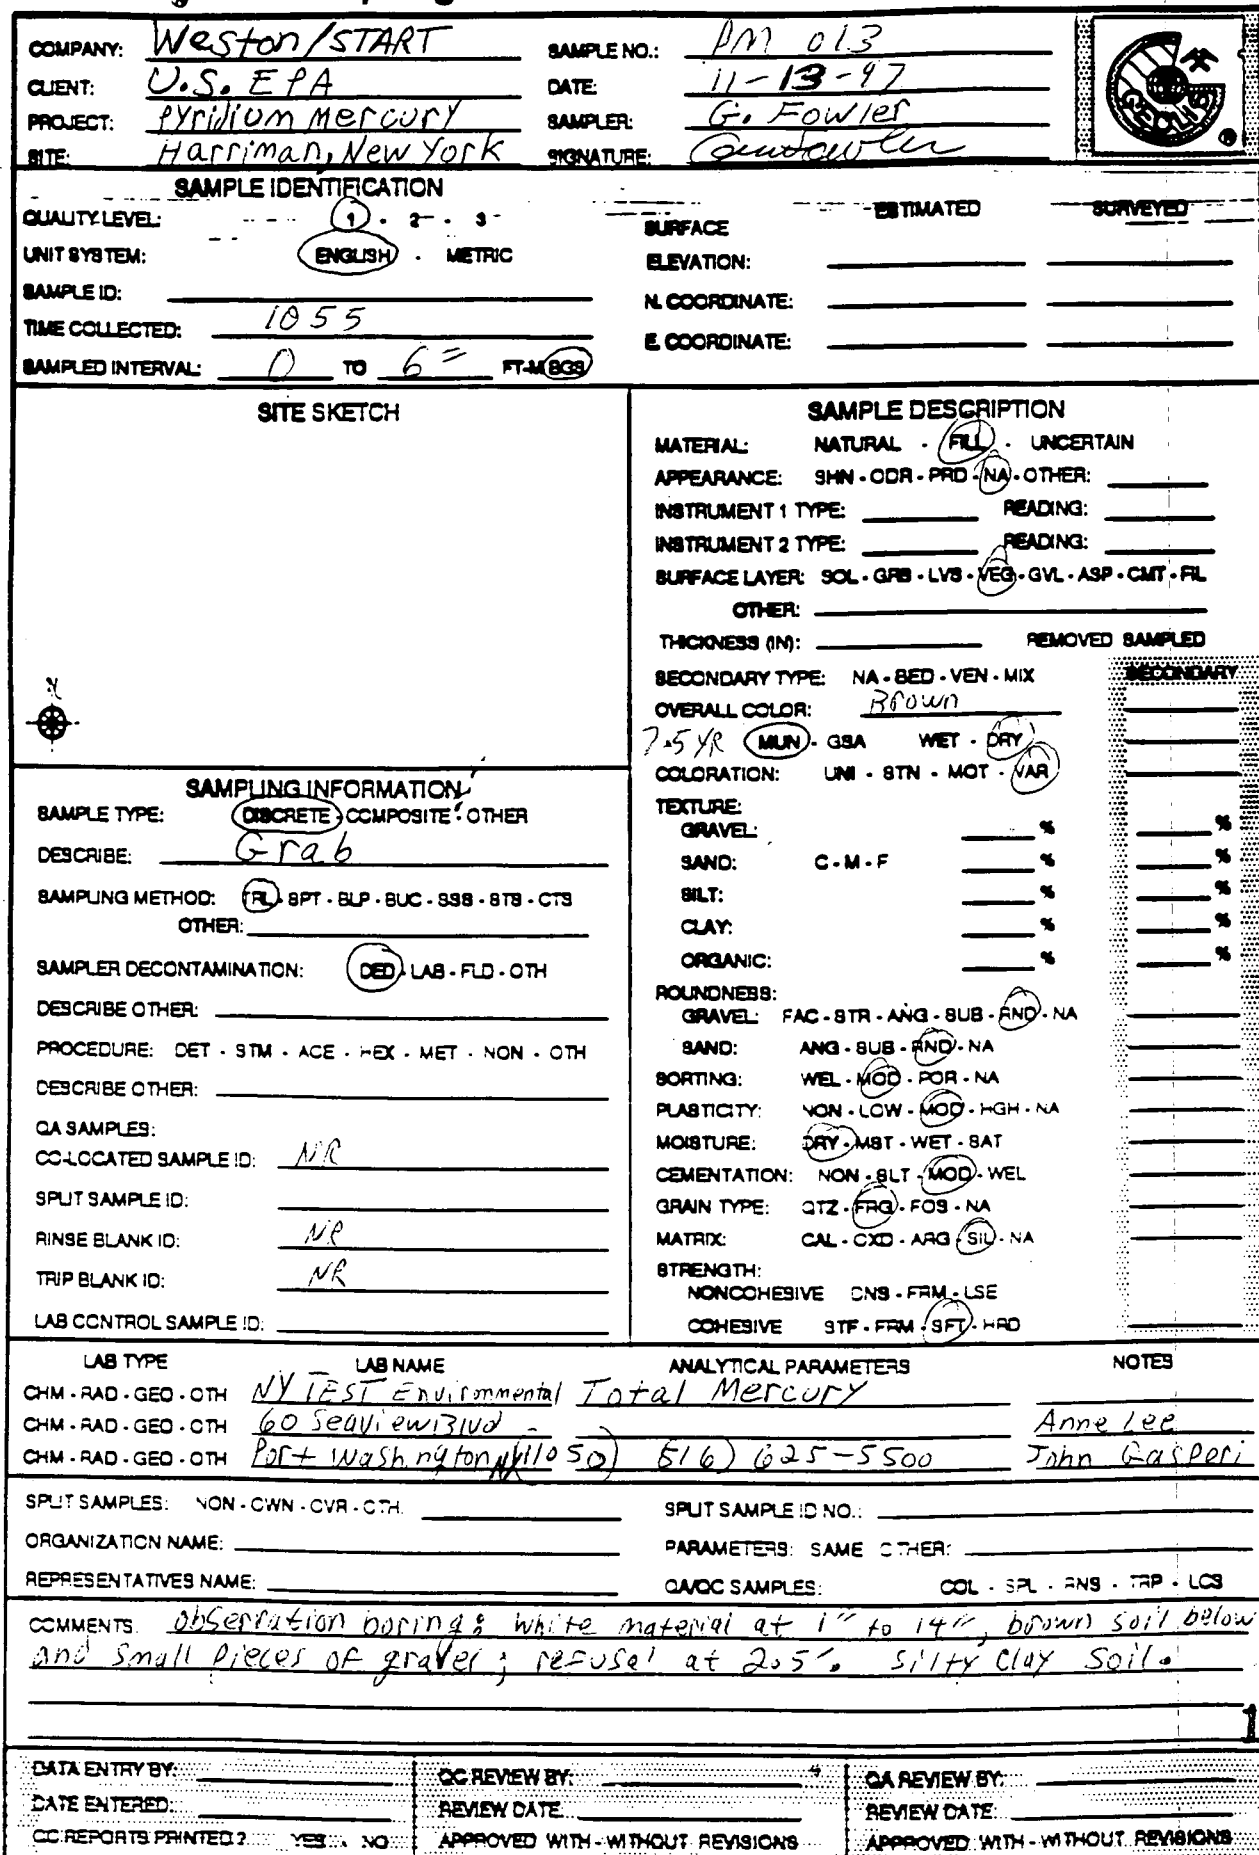 COMPANY: Weston/START SAMPLE NO.: PM 013
CLIENT: U.S. EPA DATE: 11-13-97
PROJECT: Pyridium Mercury SAMPLER: G. Fowler
SITE: Harriman, New York SIGNATURE:
GEOLIS ®
SAMPLE IDENTIFICATION
QUALITY LEVEL: 1 - 2 - 3
UNIT SYSTEM: ENGLISH - METRIC
SAMPLE ID:
TIME COLLECTED: 1055
SAMPLED INTERVAL: 0 TO 6" FT-M BGS
ESTIMATED SURVEYED
SURFACE
ELEVATION:
N. COORDINATE:
E. COORDINATE:
SITE SKETCH
N
SAMPLING INFORMATION
SAMPLE TYPE: DISCRETE - COMPOSITE - OTHER
DESCRIBE: Grab
SAMPLING METHOD: TRL - SPT - BLP - BUC - SSS - STS - CTS
OTHER:
SAMPLER DECONTAMINATION: DED - LAB - FLD - OTH
DESCRIBE OTHER:
PROCEDURE: DET - STM - ACE - HEX - MET - NON - OTH
DESCRIBE OTHER:
QA SAMPLES:
CO-LOCATED SAMPLE ID: NR
SPLIT SAMPLE ID:
RINSE BLANK ID: NR
TRIP BLANK ID: NR
LAB CONTROL SAMPLE ID:
SAMPLE DESCRIPTION
MATERIAL: NATURAL - FILL - UNCERTAIN
APPEARANCE: SHN - ODR - PRD - NA - OTHER:
INSTRUMENT 1 TYPE: READING:
INSTRUMENT 2 TYPE: READING:
SURFACE LAYER: SOL - GRS - LVS - VEG - GVL - ASP - CMT - FIL
OTHER:
THICKNESS (IN): REMOVED SAMPLED
SECONDARY TYPE: NA - BED - VEN - MIX SECONDARY
OVERALL COLOR: Brown
7.5 YR MUN - GSA WET - DRY
COLORATION: UNI - STN - MOT - VAR
TEXTURE:
GRAVEL: % %
SAND: C - M - F % %
SILT: % %
CLAY: % %
ORGANIC: % %
ROUNDNESS:
GRAVEL: FAC - STR - ANG - SUB - RND - NA
SAND: ANG - SUB - RND - NA
SORTING: WEL - MOD - POR - NA
PLASTICITY: NON - LOW - MOD - HGH - NA
MOISTURE: DRY - MST - WET - SAT
CEMENTATION: NON - SLT - MOD - WEL
GRAIN TYPE: QTZ - FRG - FOS - NA
MATRIX: CAL - CXD - ARG - SIL - NA
STRENGTH:
NONCOHESIVE DNS - FRM - LSE
COHESIVE STF - FRM - SFT - HRD
LAB TYPE LAB NAME ANALYTICAL PARAMETERS NOTES
CHM - RAD - GEO - OTH NYTEST Environmental Total Mercury
CHM - RAD - GEO - OTH 60 Seaview Blvd Anne Lee
CHM - RAD - GEO - OTH Port Washington NY (11050) 516) 625-5500 John Gasperi
SPLIT SAMPLES: NON - OWN - OVR - OTH: SPLIT SAMPLE ID NO.:
ORGANIZATION NAME: PARAMETERS: SAME OTHER:
REPRESENTATIVES NAME: QA/QC SAMPLES: COL - SPL - RNS - TRP - LCS
COMMENTS: Observation boring: White material at 1" to 14", brown soil below
and small pieces of gravel; refusal at 2.5'. Silty Clay Soil.
1
DATA ENTRY BY: QC REVIEW BY: QA REVIEW BY:
DATE ENTERED: REVIEW DATE: REVIEW DATE:
QC REPORTS PRINTED? YES - NO APPROVED WITH - WITHOUT REVISIONS APPROVED WITH - WITHOUT REVISIONS